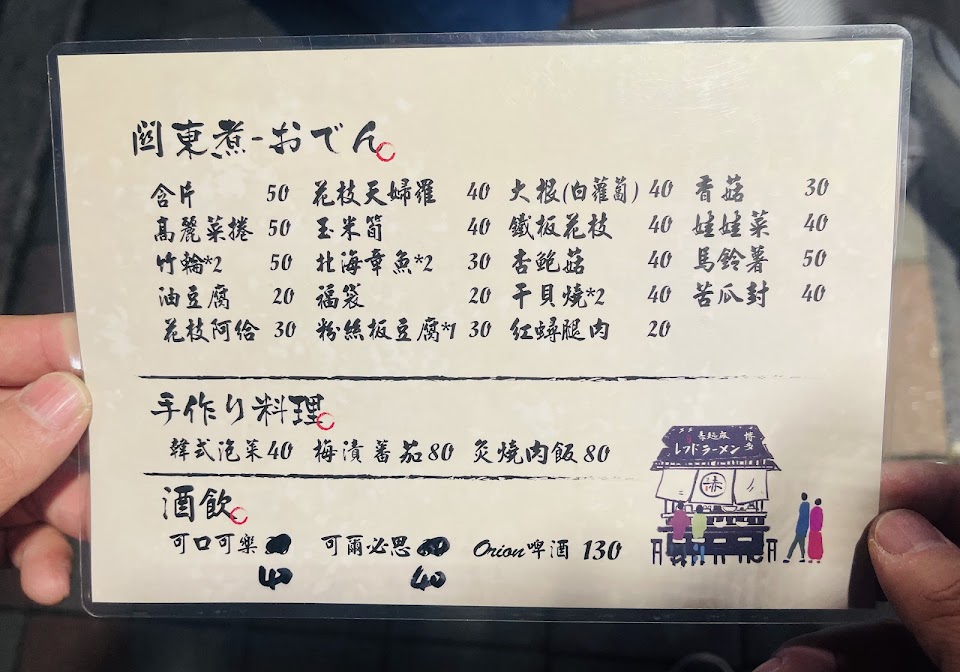 関東煮-おでん
含片 50 花枝天婦羅 40 大根(白蘿蔔) 40 香菇 30
高麗菜捲 50 玉米筍 40 鐵板花枝 40 娃娃菜 40
竹輪*2 50 北海章魚*2 30 杏鮑菇 40 馬鈴薯 50
油豆腐 20 福袋 20 干貝燒*2 40 苦瓜封 40
花枝阿給 30 粉絲板豆腐*1 30 紅蟳腿肉 20
手作り料理
韓式泡菜 40 梅漬蕃茄 80 炙燒肉飯 80
酒飲
可口可樂 可爾必思 Orion啤酒 130
40 40
赤麺廠 博多
レッドラーメン
赤